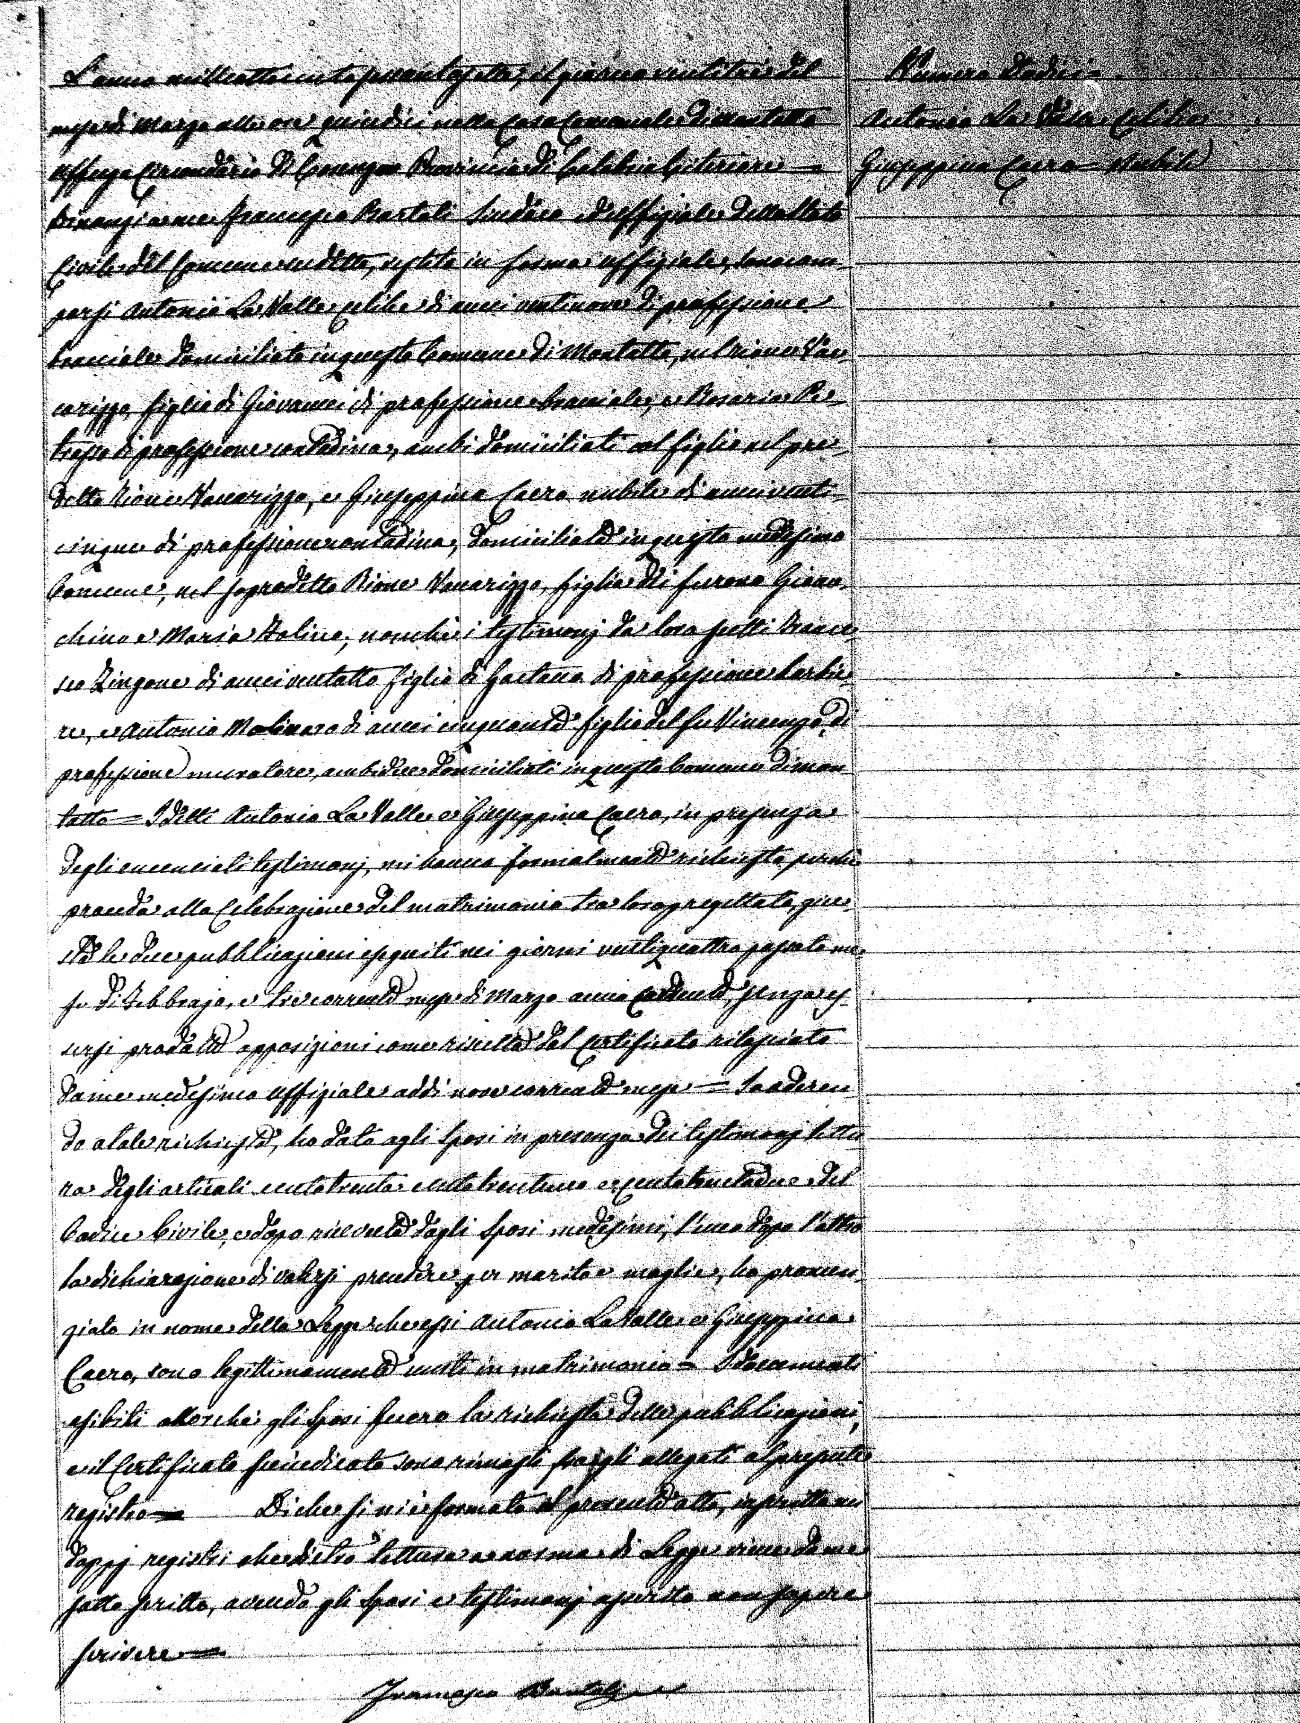 L'anno milleottocento sessantasette, il giorno ventitrè del
mese di Marzo alle ore quindici nella Casa Comunale di Montalto
Uffugo Circondario di Cosenza Provincia di Calabria Citeriore —
Dinanzi a me Francesco Bartoli Sindaco ed Uffiziale dello Stato
Civile del Comune suddetto, vestito in forma uffiziale, sono com-
parsi Antonio La Valle celibe di anni ventinove di professione
bracciale domiciliato in questo Comune di Montalto, nel rione Vac-
carizzo, figlio di Giovanni di professione bracciale, e Rosaria
di professione contadina, ambi domiciliati col figlio nel pre-
detto Rione Vaccarizzo, e Giuseppina Caera nubile di anni venti-
cinque di professione contadina, domiciliata in questo medesimo
Comune, nel sopradetto Rione Vaccarizzo, figlia dei furono Gioac-
chino e Maria Stolino; nonchè i testimonj da loro scelti France-
sco Zingone di anni ventotto figlio di Gaetano di professione barbie-
re, e Antonio Molinaro di anni cinquanta figlio del fu Vincenzo, di
professione muratore, ambidue domiciliati in questo Comune di Mon-
talto — I detti Antonio La Valle e Giuseppina Caera, in presenza
degli enunciati testimonj, mi hanno formalmente richiesto, perchè
proceda alla Celebrazione del matrimonio tra loro progettato, giu-
sta le due pubblicazioni eseguiti nei giorni ventiquattro passato me-
se di Febbrajo, e tre corrente mese di Marzo anno corrente, senza es-
sersi prodotte opposizioni come risulta dal Certificato rilasciato
da me medesimo Uffiziale addì nove corrente mese — Io aderen-
do a tale richiesta, ho dato agli Sposi in presenza dei testimonj lettu-
ra degli articoli centotrenta centotrentuno e centotrentadue del
Codice Civile, e dopo ricevuta dagli Sposi medesimi, l'uno dopo l'altro
la dichiarazione di volersi prendere per marito e moglie, ho pronun-
ziato in nome della Legge che essi Antonio La Valle e Giuseppina
Caera, sono legittimamente uniti in matrimonio — I documenti
esibiti allorchè gli Sposi fecero la richiesta delle pubblicazioni,
e il Certificato suindicato sono rimasti fra gli allegati al presente
registro — Di che si n'è formato il presente atto, inscritto su
doppj registri che dietro lettura a norma di Legge viene da me
sotto scritto, avendo gli Sposi e testimonj asserito non sapere
scrivere —
Francesco Bartoli
Numero Dodici
Antonio La Valle Celibe
Giuseppina Caera — Nubile